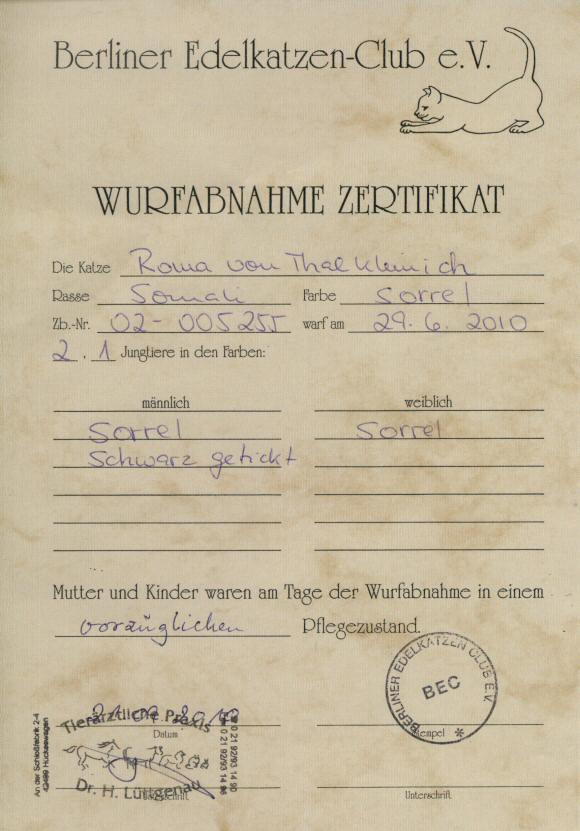 Berliner Edelkatzen-Club e.V.
WURFABNAHME ZERTIFIKAT
Die Katze Roma von Thalkleinich
Rasse Somali Farbe Sorrel
Zb.-Nr. 02-005255 warf am 29.6.2010
2.1 Jungtiere in den Farben:
männlich weiblich
Sorrel Sorrel
Schwarz getickt
Mutter und Kinder waren am Tage der Wurfabnahme in einem
vorzüglichen Pflegezustand.
BERLINER EDELKATZEN CLUB E.V.
BEC
Tierärztliche Praxis
Datum Stempel
Dr. H. Lüttgenau
An der Schloßfabrik 2-4
42499 Hückeswagen
0 21 92/93 14 90
Unterschrift Unterschrift